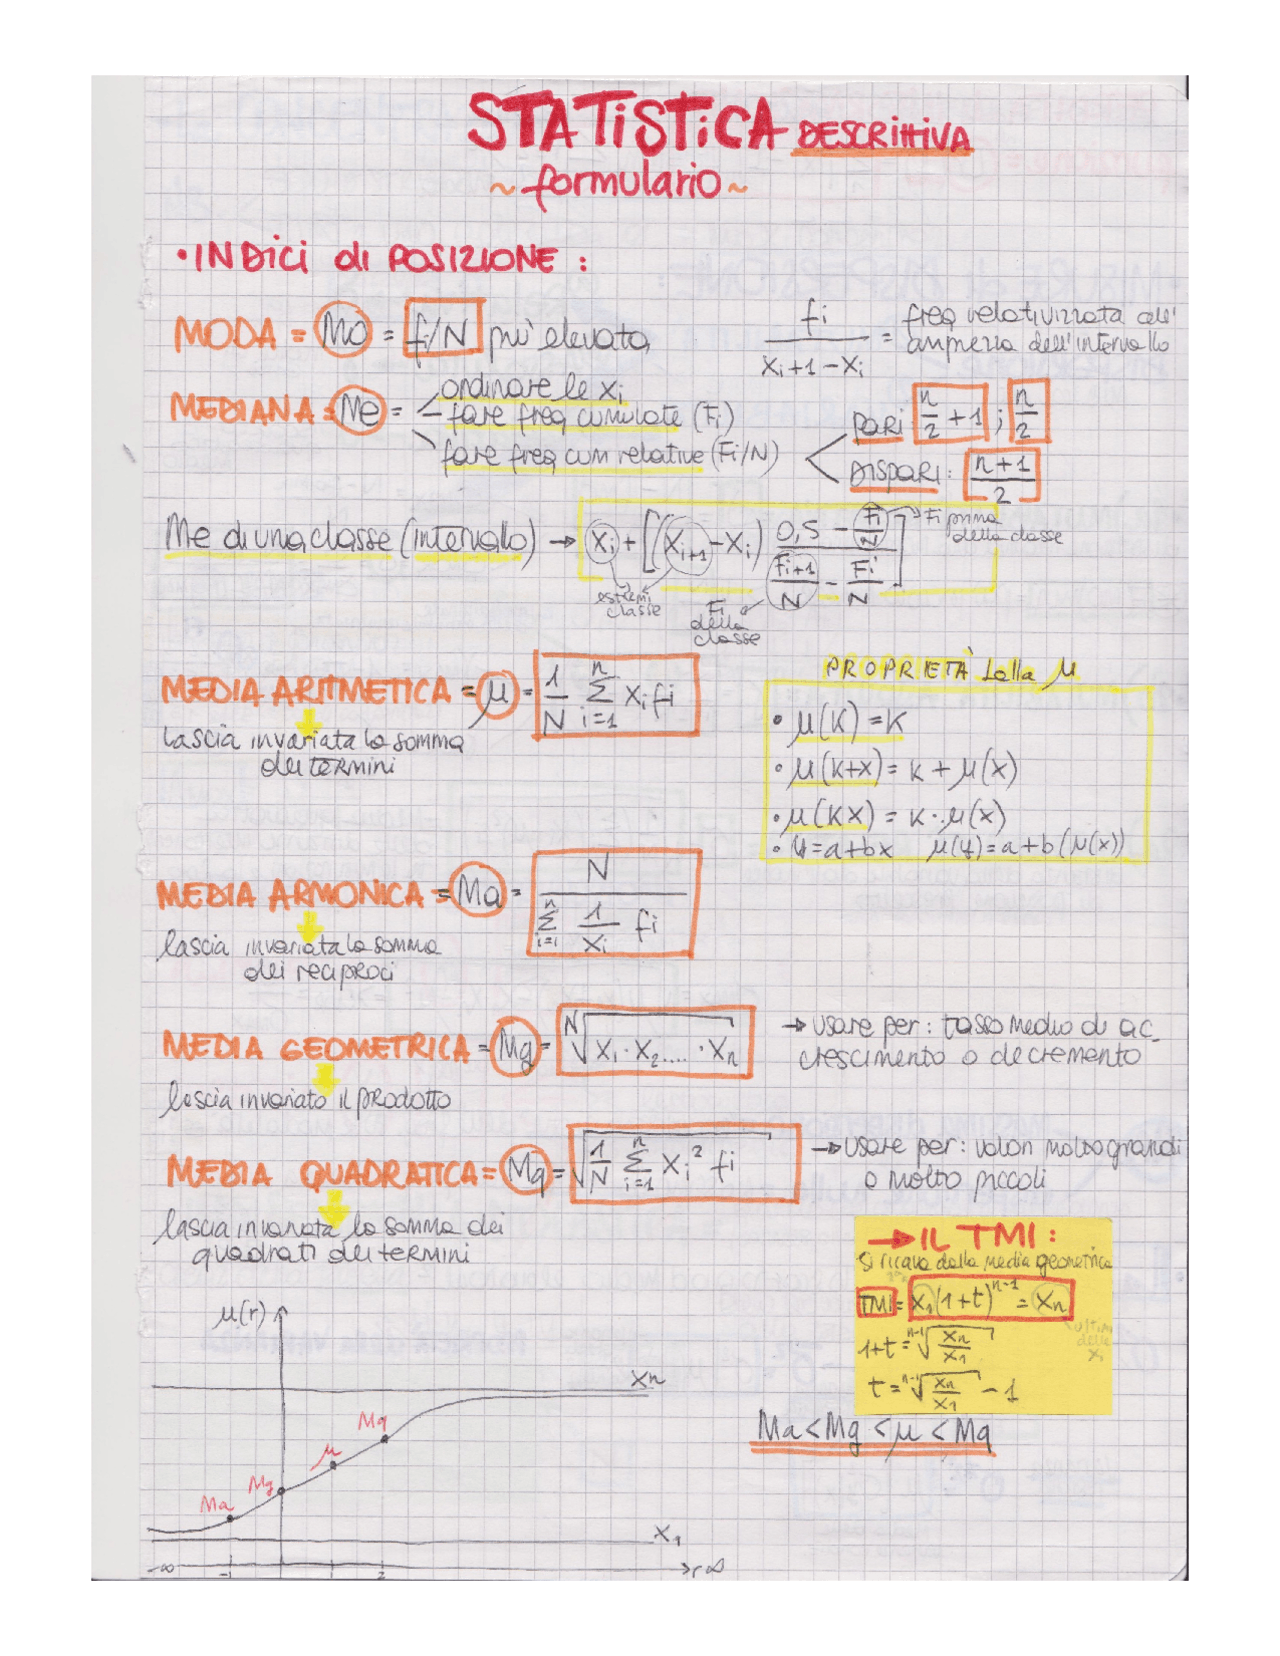 STATISTICA DESCRITTIVA
~ formulario ~
• INDICI di POSIZIONE :
MODA = Mo = fi/N più elevata
fi / (xi+1 - xi) = freq relativizzata all'ampiezza dell'intervallo
MEDIANA = Me =
ordinare le xi
fare freq cumulate (Fi)
fare freq cum relative (Fi/N)
PARI: n/2 + 1 ; n/2
DISPARI: (n+1)/2
Me di una classe (intervallo) → xi + [(xi+1 - xi) (0,5 - Fi/N) / (Fi+1/N - Fi/N)]
→ Fi prima della classe
estremi classe
Fi della classe
MEDIA ARITMETICA = μ = 1/N Σ i=1 n xi fi
lascia invariata la somma
dei termini
PROPRIETÀ della μ
• μ(K) = K
• μ(K+x) = K + μ(x)
• μ(Kx) = K · μ(x)
• y = a+bx μ(y) = a+b(μ(x))
MEDIA ARMONICA = Ma = N / (Σ i=i n 1/xi fi)
lascia invariata la somma
dei reciproci
MEDIA GEOMETRICA = Mg = N√(x1 · x2 .... · xn)
→ usare per: tasso medio di ac-
crescimento o decremento
lascia invariato il prodotto
MEDIA QUADRATICA = Mq = √(1/N Σ i=1 n xi² fi)
→ usare per: valori molto grandi
o molto piccoli
lascia invariata la somma dei
quadrati dei termini
→ IL TMI :
si ricava dalla media geometrica
TMI = x1(1+t)^n-1 = xn
ultimi delle xi
1+t = n-1√(xn/x1)
t = n-1√(xn/x1) - 1
Ma < Mg < μ < Mq
μ(r)
xn
Mq
μ
Mg
Ma
x1
-∞ -1 2 r ∞